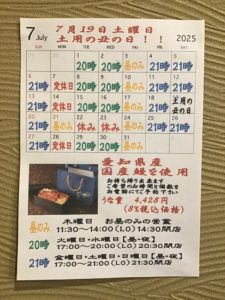 7 July
7月19日土曜日
土用の丑の日！！
2025
SUN MON TUE WED THU FRI SAT
1 2 3 4 5
20時 20時 昼のみ 21時 21時
6 7 8 9 10 11 12
21時 定休日 20時 20時 昼のみ 21時 21時
13 14 15 16 17 18 19
21時 定休日 20時 20時 昼のみ 21時 土用の丑の日
20 21 22 23 24 25 26
21時 昼のみ 休み 休み 昼のみ 21時 21時
27 28 29 30 31
21時 定休日 20時 20時 昼のみ
愛知県産
国産鰻を使用
お持ち帰り出来ます
ご希望のお時間と個数を
お電話にてご予約下さい
うな重 4,428円
(8%税込価格)
昼のみ 木曜日 お昼のみの営業
11:30~14:00(LO)14:30閉店
20時 火曜日・水曜日【昼・夜】
17:00~20:00(LO)20:30閉店
21時 金曜日・土曜日・日曜日【昼・夜】
17:00~21:00(LO)21:30閉店